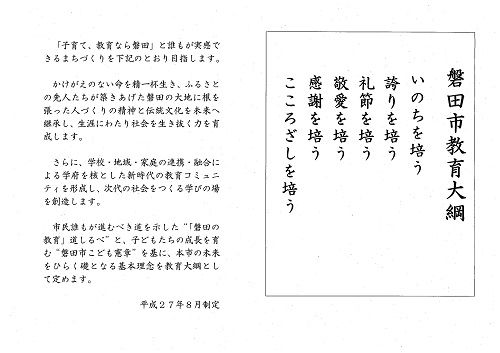 磐田市教育大綱
いのちを培う
誇りを培う
礼節を培う
敬愛を培う
感謝を培う
こころざしを培う
「子育て、教育なら磐田」と誰もが実感で
きるまちづくりを下記のとおり目指します。
かけがえのない命を精一杯生き、ふるさと
の先人たちが築きあげた磐田の大地に根を
張った人づくりの精神と伝統文化を未来へ
継承し、生涯にわたり社会を生き抜く力を育
成します。
さらに、学校・地域・家庭の連携・融合に
よる学府を核とした新時代の教育コミュニ
ティを形成し、次代の社会をつくる学びの場
を創造します。
市民誰もが進むべき道を示した“「磐田の
教育」道しるべ”と、子どもたちの成長を育
む“磐田市こども憲章”を基に、本市の未来
をひらく礎となる基本理念を教育大綱とし
て定めます。
平成27年8月制定